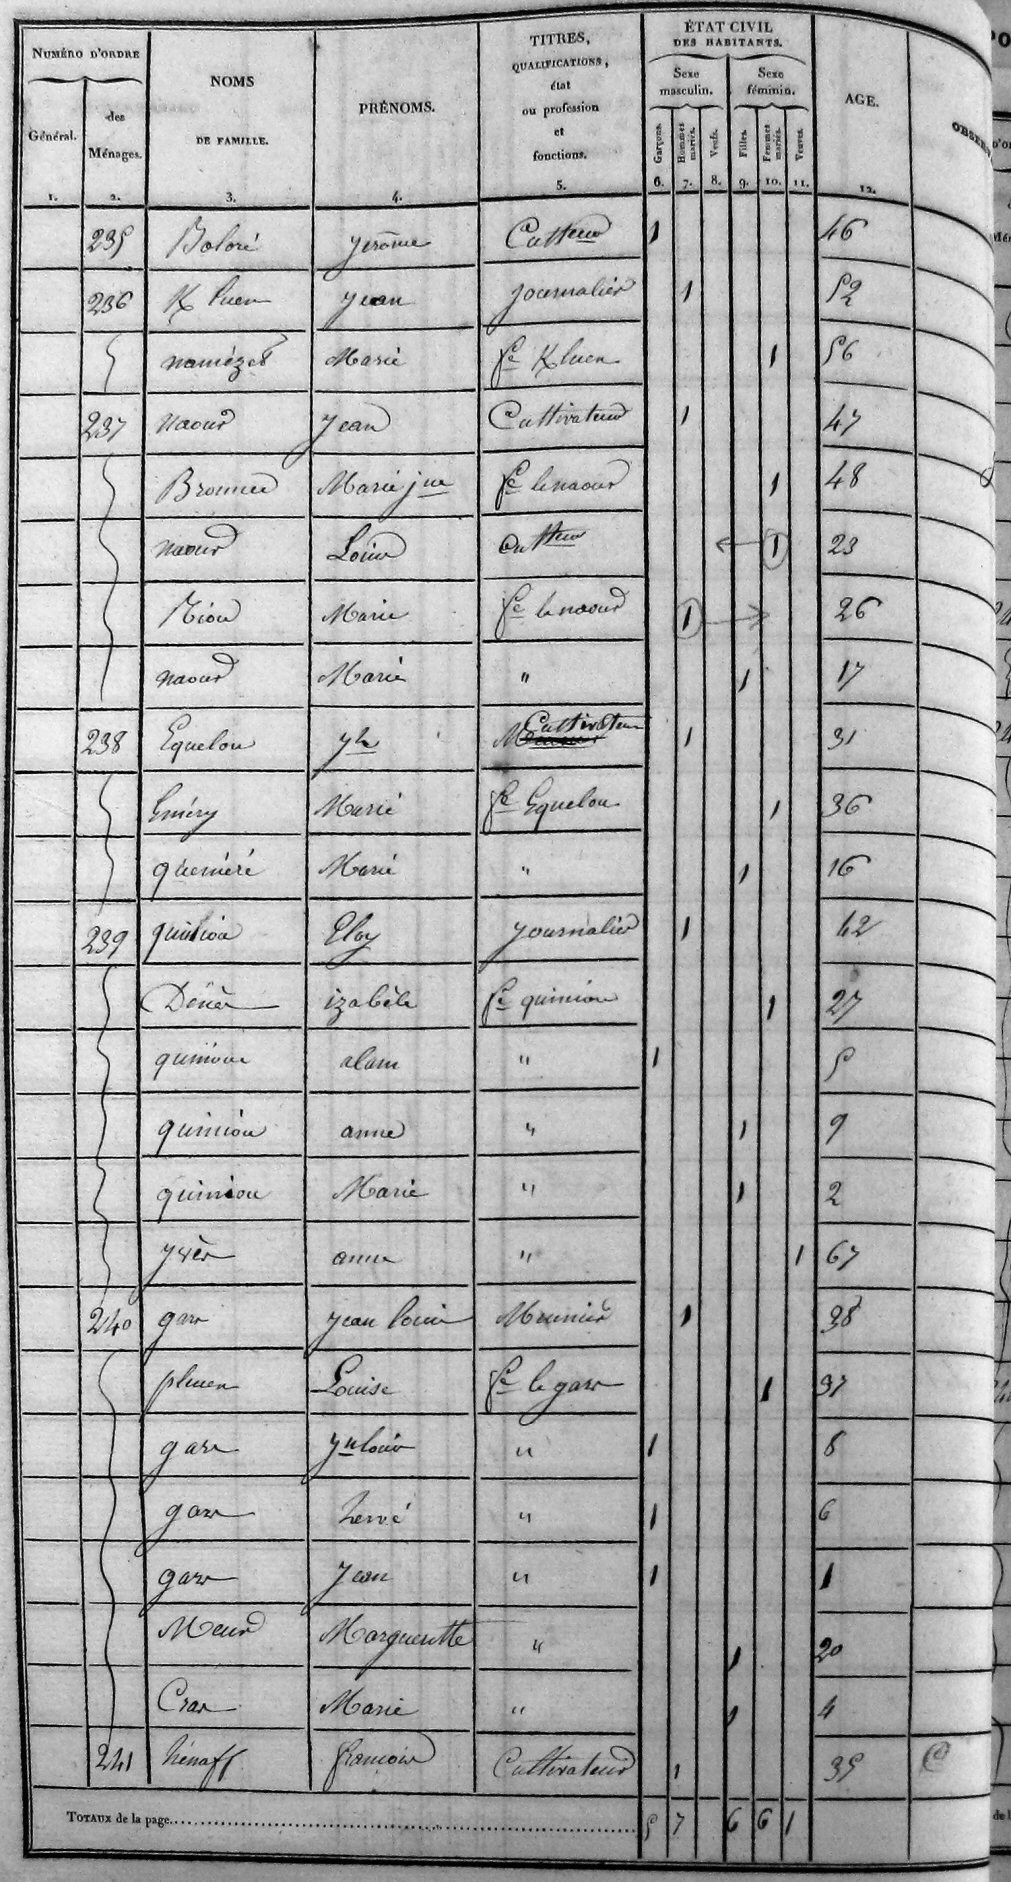 NUMÉRO D'ORDRE
Général.
des Ménages.
NOMS
DE FAMILLE.
PRÉNOMS.
TITRES,
QUALIFICATIONS,
état
ou profession
et
fonctions.
ÉTAT CIVIL
DES HABITANTS.
Sexe masculin.
Sexe féminin.
Garçons.
Hommes mariés.
Veufs.
Filles.
Femmes mariés.
Veuves.
AGE.
1. 2. 3. 4. 5. 6. 7. 8. 9. 10. 11. 12.
235 Boloré jerôme Cultteur 1 46
236 K luen jean journalier 1 52
namézec Marie fe K luen 1 56
237 naour jean Cultivateur 1 47
Bronnec Marie jne fe le naour 1 48
naour Louis Cultteur 1 23
Riou Marie fe le naour 1 26
naour Marie " 1 17
238 Equelou yh Cultivateur 1 31
Emery Marie fe Equelou 1 36
quéméré Marie " 1 16
239 quiniou Eloy journalier 1 42
izabèle fe quiniou 1 27
quiniou alain " 1 5
quiniou anne " 1 9
quiniou Marie " 1 2
anne " 1 67
240 garr jean louis Meunier 1 38
pluen Louise fe le garr 1 37
garr jn louis " 1 8
garr hervé " 1 6
garr jean " 1 1
Meur Margueritte " 1 20
Crar Marie " 1 4
241 hénaff françois Cultivateur 1 35
TOTAUX de la page 5 7 6 6 1